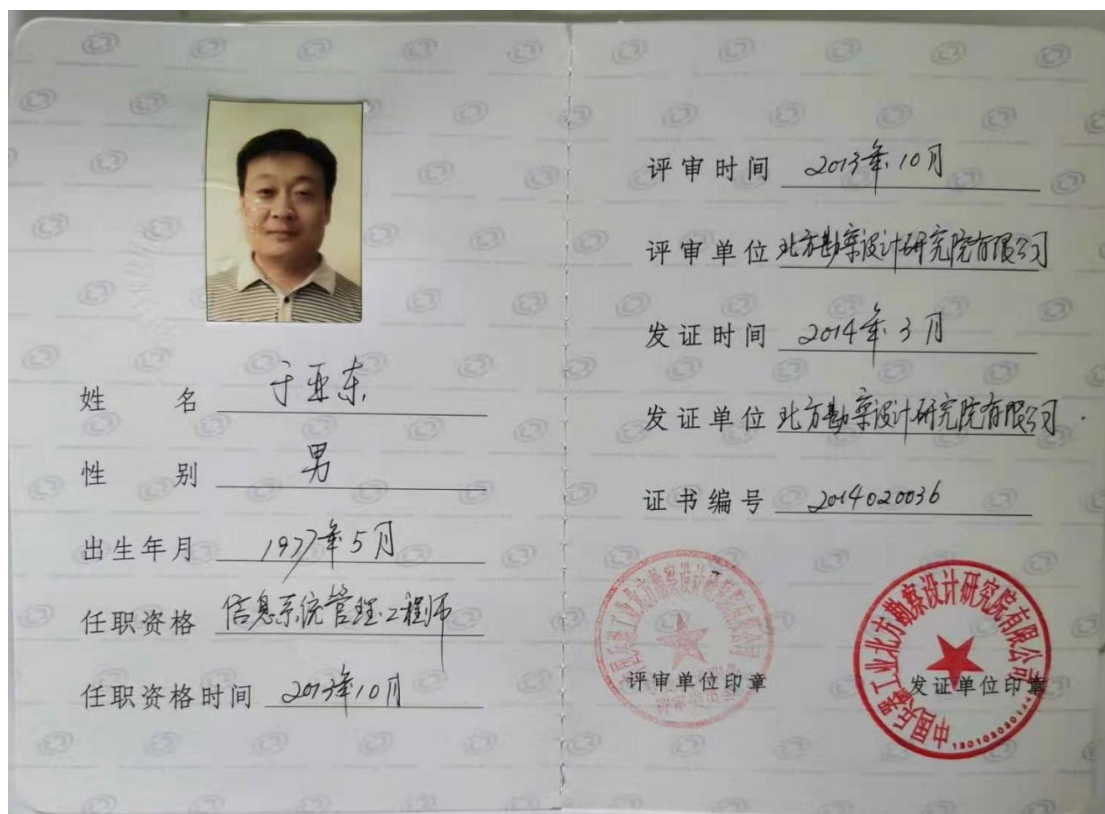 姓 名 于亚东
性 别 男
出生年月 1977年5月
任职资格 信息系统管理工程师
任职资格时间 2013年10月
评审时间 2013年10月
评审单位 北方勘察设计研究院有限公司
发证时间 2014年3月
发证单位 北方勘察设计研究院有限公司
证书编号 2014020036
评审单位印章
中国兵器工业北方勘察设计研究院有限公司
发证单位印章